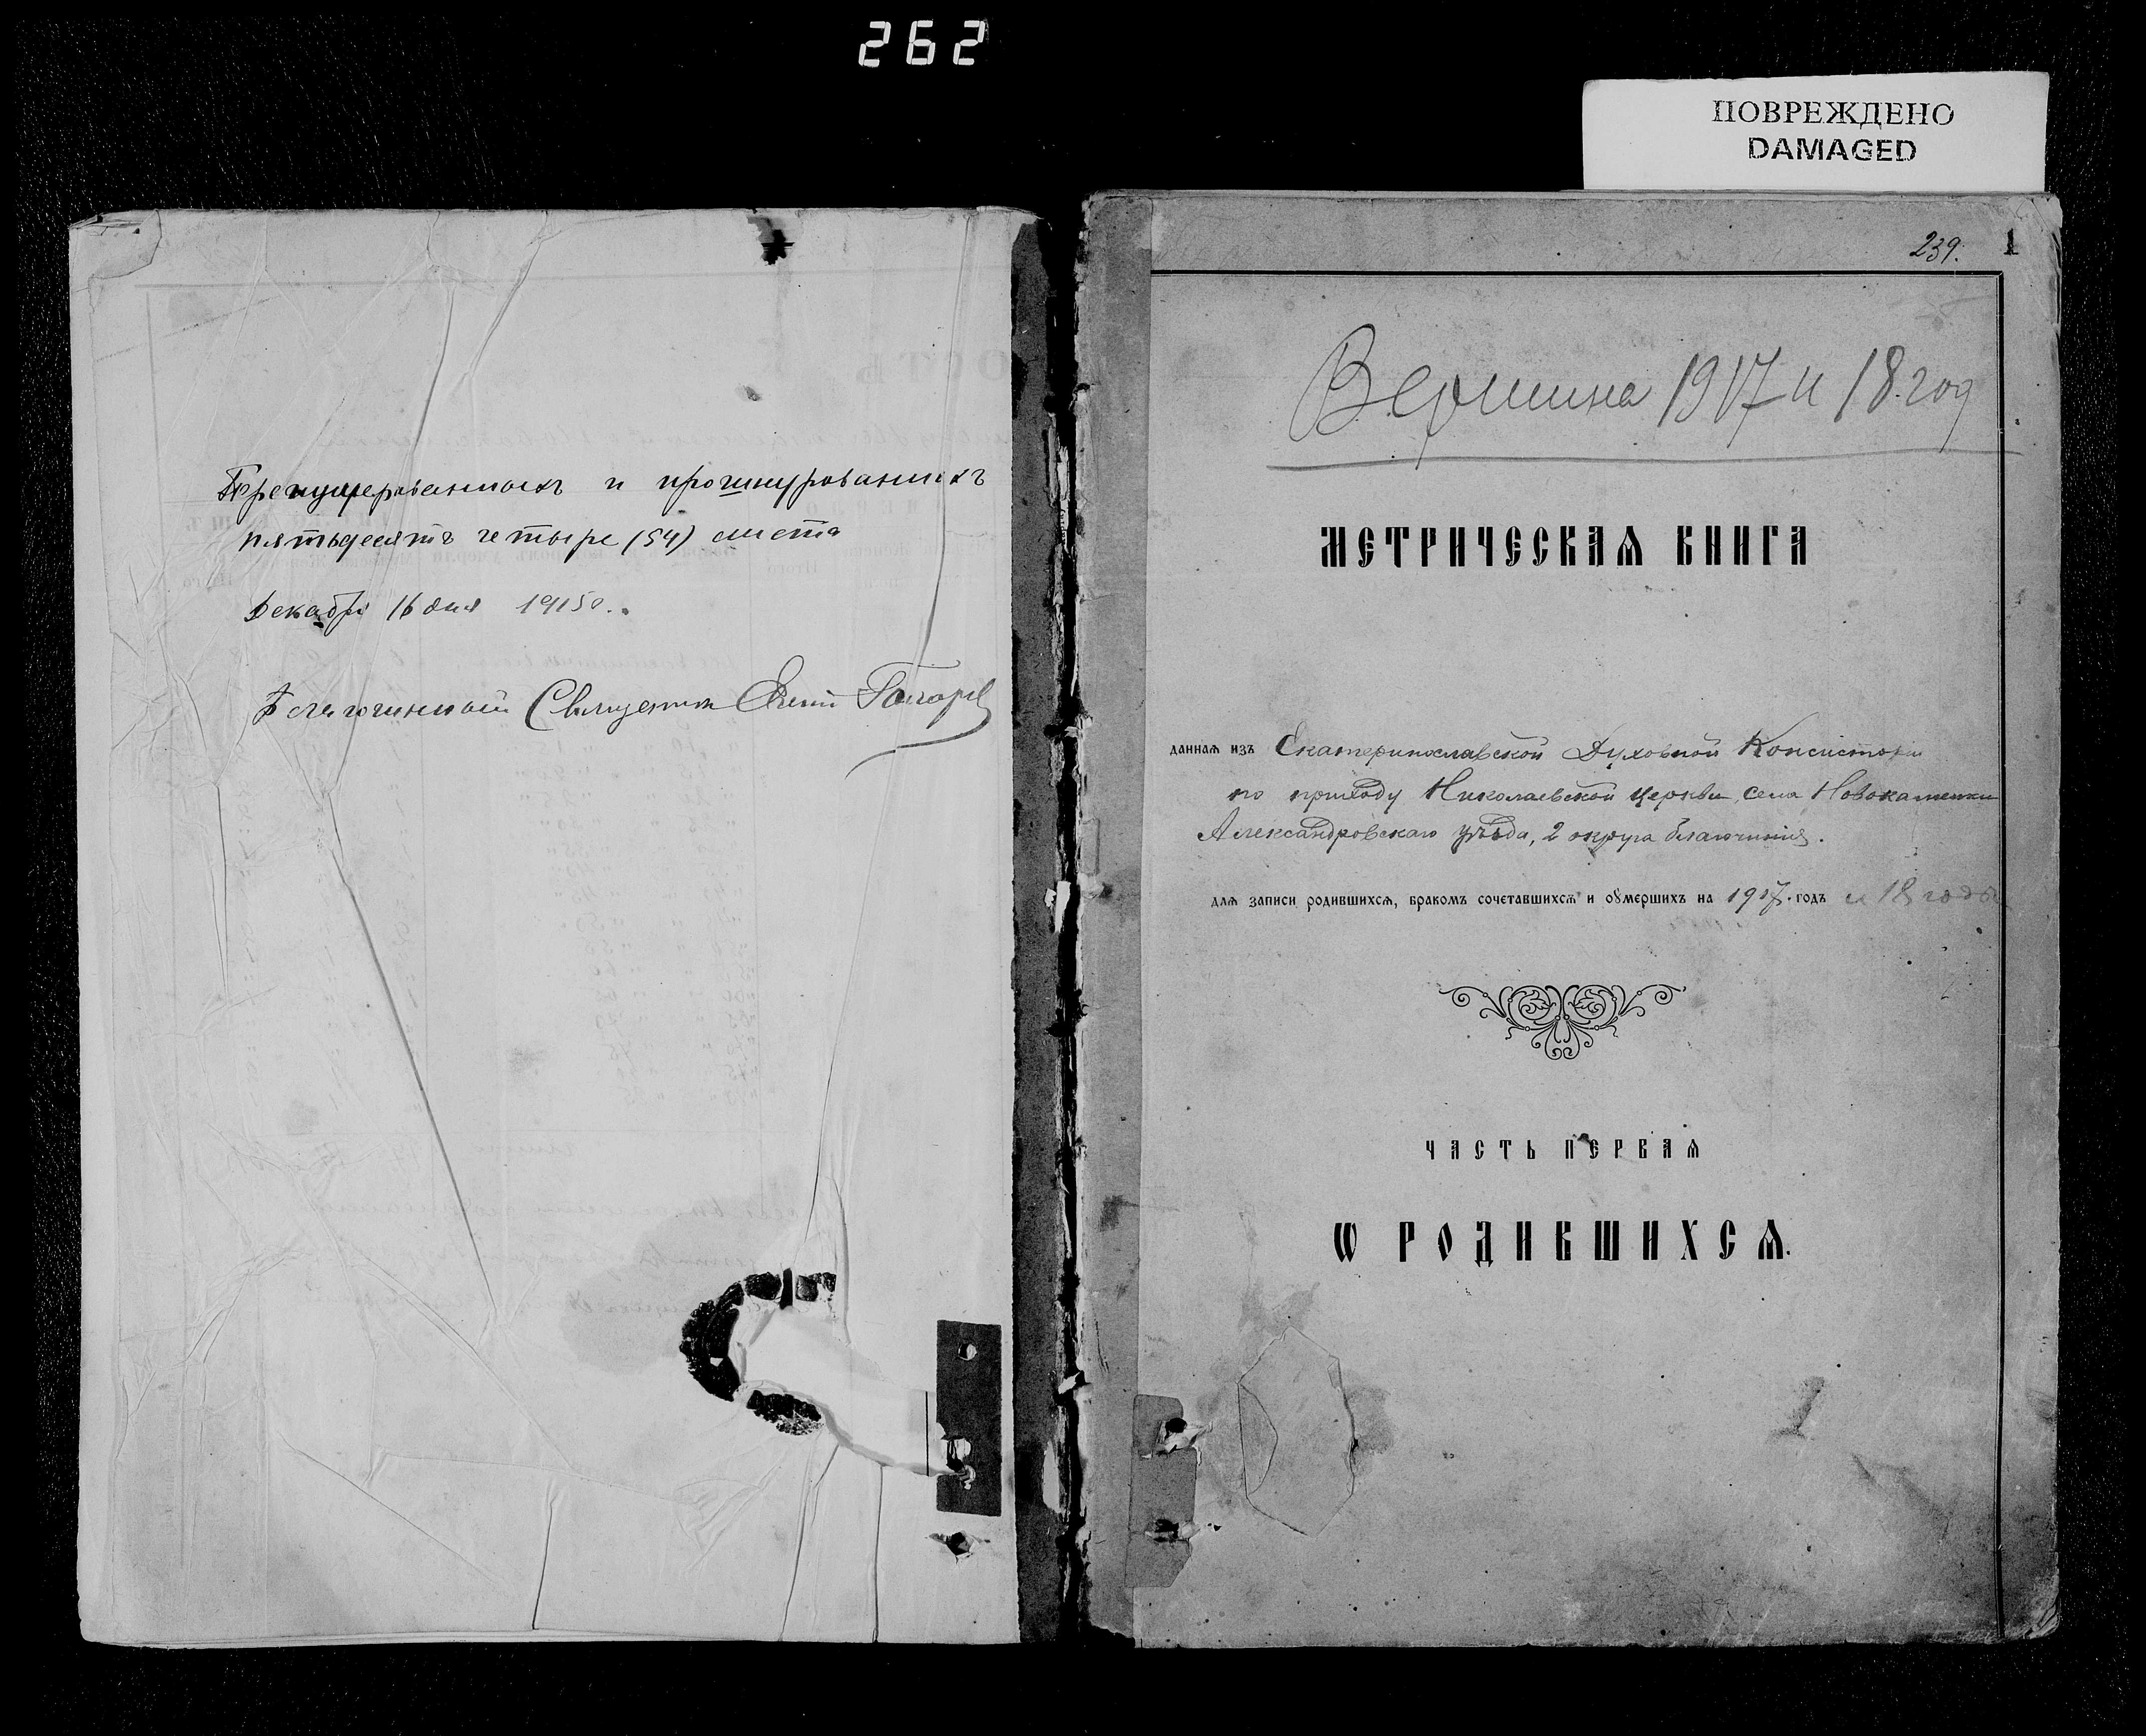 262
ПОВРЕЖДЕНО
DAMAGED
и прошнурованныхъ
пятьдесятъ четыре (54) листа
Декабря 16 дня 1915 г.
Благочинный Священникъ
239.
1
Вершина 1917 и 18 год
МЕТРИЧЕСКАѦ КНИГА
даннаѧ изъ Екатеринославской Духовной Консисторіи
по приходу Николаевской церкви, села Новокаменки
Александровскаго уѣзда, 2 округа благочинія.
длѧ записи родившихсѧ, бракомъ сочетавшихсѧ и оумершихъ на 1917. годъ и 18 годъ
ЧАСТЬ ПЕРВАѦ
Ѡ РОДИВШИХСѦ.